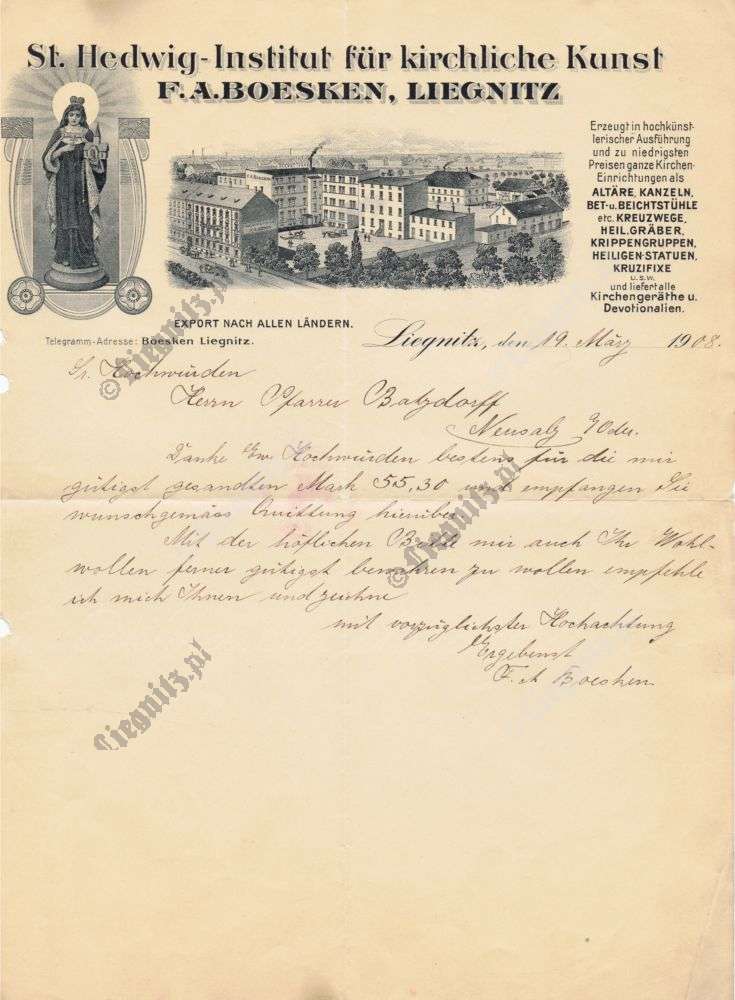 St. Hedwig-Institut für kirchliche Kunst
F. A. BOESKEN, LIEGNITZ
Erzeugt in hochkünst-
lerischer Ausführung
und zu niedrigsten
Preisen ganze Kirchen-
Einrichtungen als
ALTÄRE, KANZELN,
BET- u. BEICHTSTÜHLE
etc. KREUZWEGE,
HEIL. GRÄBER,
KRIPPENGRUPPEN,
HEILIGEN-STATUEN,
KRUZIFIXE
u.s.w.
und liefert alle
Kirchengeräthe u.
Devotionalien.
EXPORT NACH ALLEN LÄNDERN.
Telegramm-Adresse: Boesken Liegnitz.
Liegnitz, den 19. März 1908.
Sr. Hochwürden
Herrn Pfarrer Batzdorff
Neusalz /Oder.
Danke Ew. Hochwürden bestens für die mir
gütigst gesandten Mark 55,30 und empfangen Sie
wunschgemäss Quittung hierüber.
Mit der höflichen Bitte mir auch Ihr Wohl-
wollen ferner gütigst bewahren zu wollen empfehle
ich mich Ihnen und zeichne
mit vorzüglichster Hochachtung
Ergebenst
F. A Boesken.
© Liegnitz.pl
© Liegnitz.pl
Liegnitz.pl